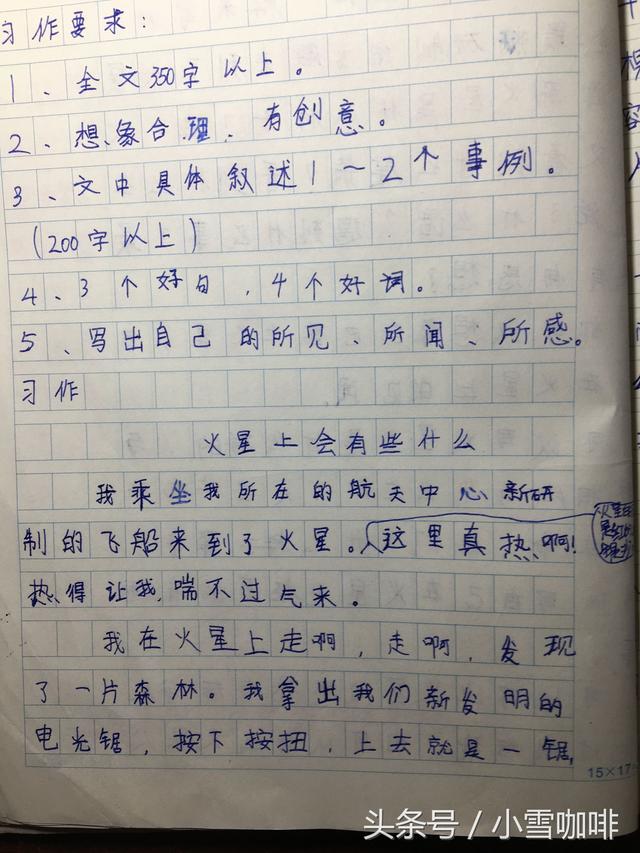 习作要求：
1、全文350字以上。
2、想象合理、有创意。
3、文中具体叙述1～2个事例。
（200字以上）
4、3个好句，4个好词。
5、写出自己的所见、所闻、所感。
习作
火星上会有些什么
我乘坐我所在的航天中心新研
制的飞船来到了火星。这里真热啊！
热得让我喘不过气来。
我在火星上走啊，走啊，发现
了一片森林。我拿出我们新发明的
电光锯，按下按扭，上去就是一锯，
15×17
头条号／小雪咖啡